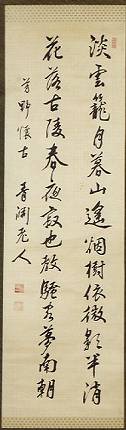 淡雲籠月暮山遙烟樹依微影半消
花落古陵春夜寂也教騷客夢南朝
芳野懐古 青淵老人